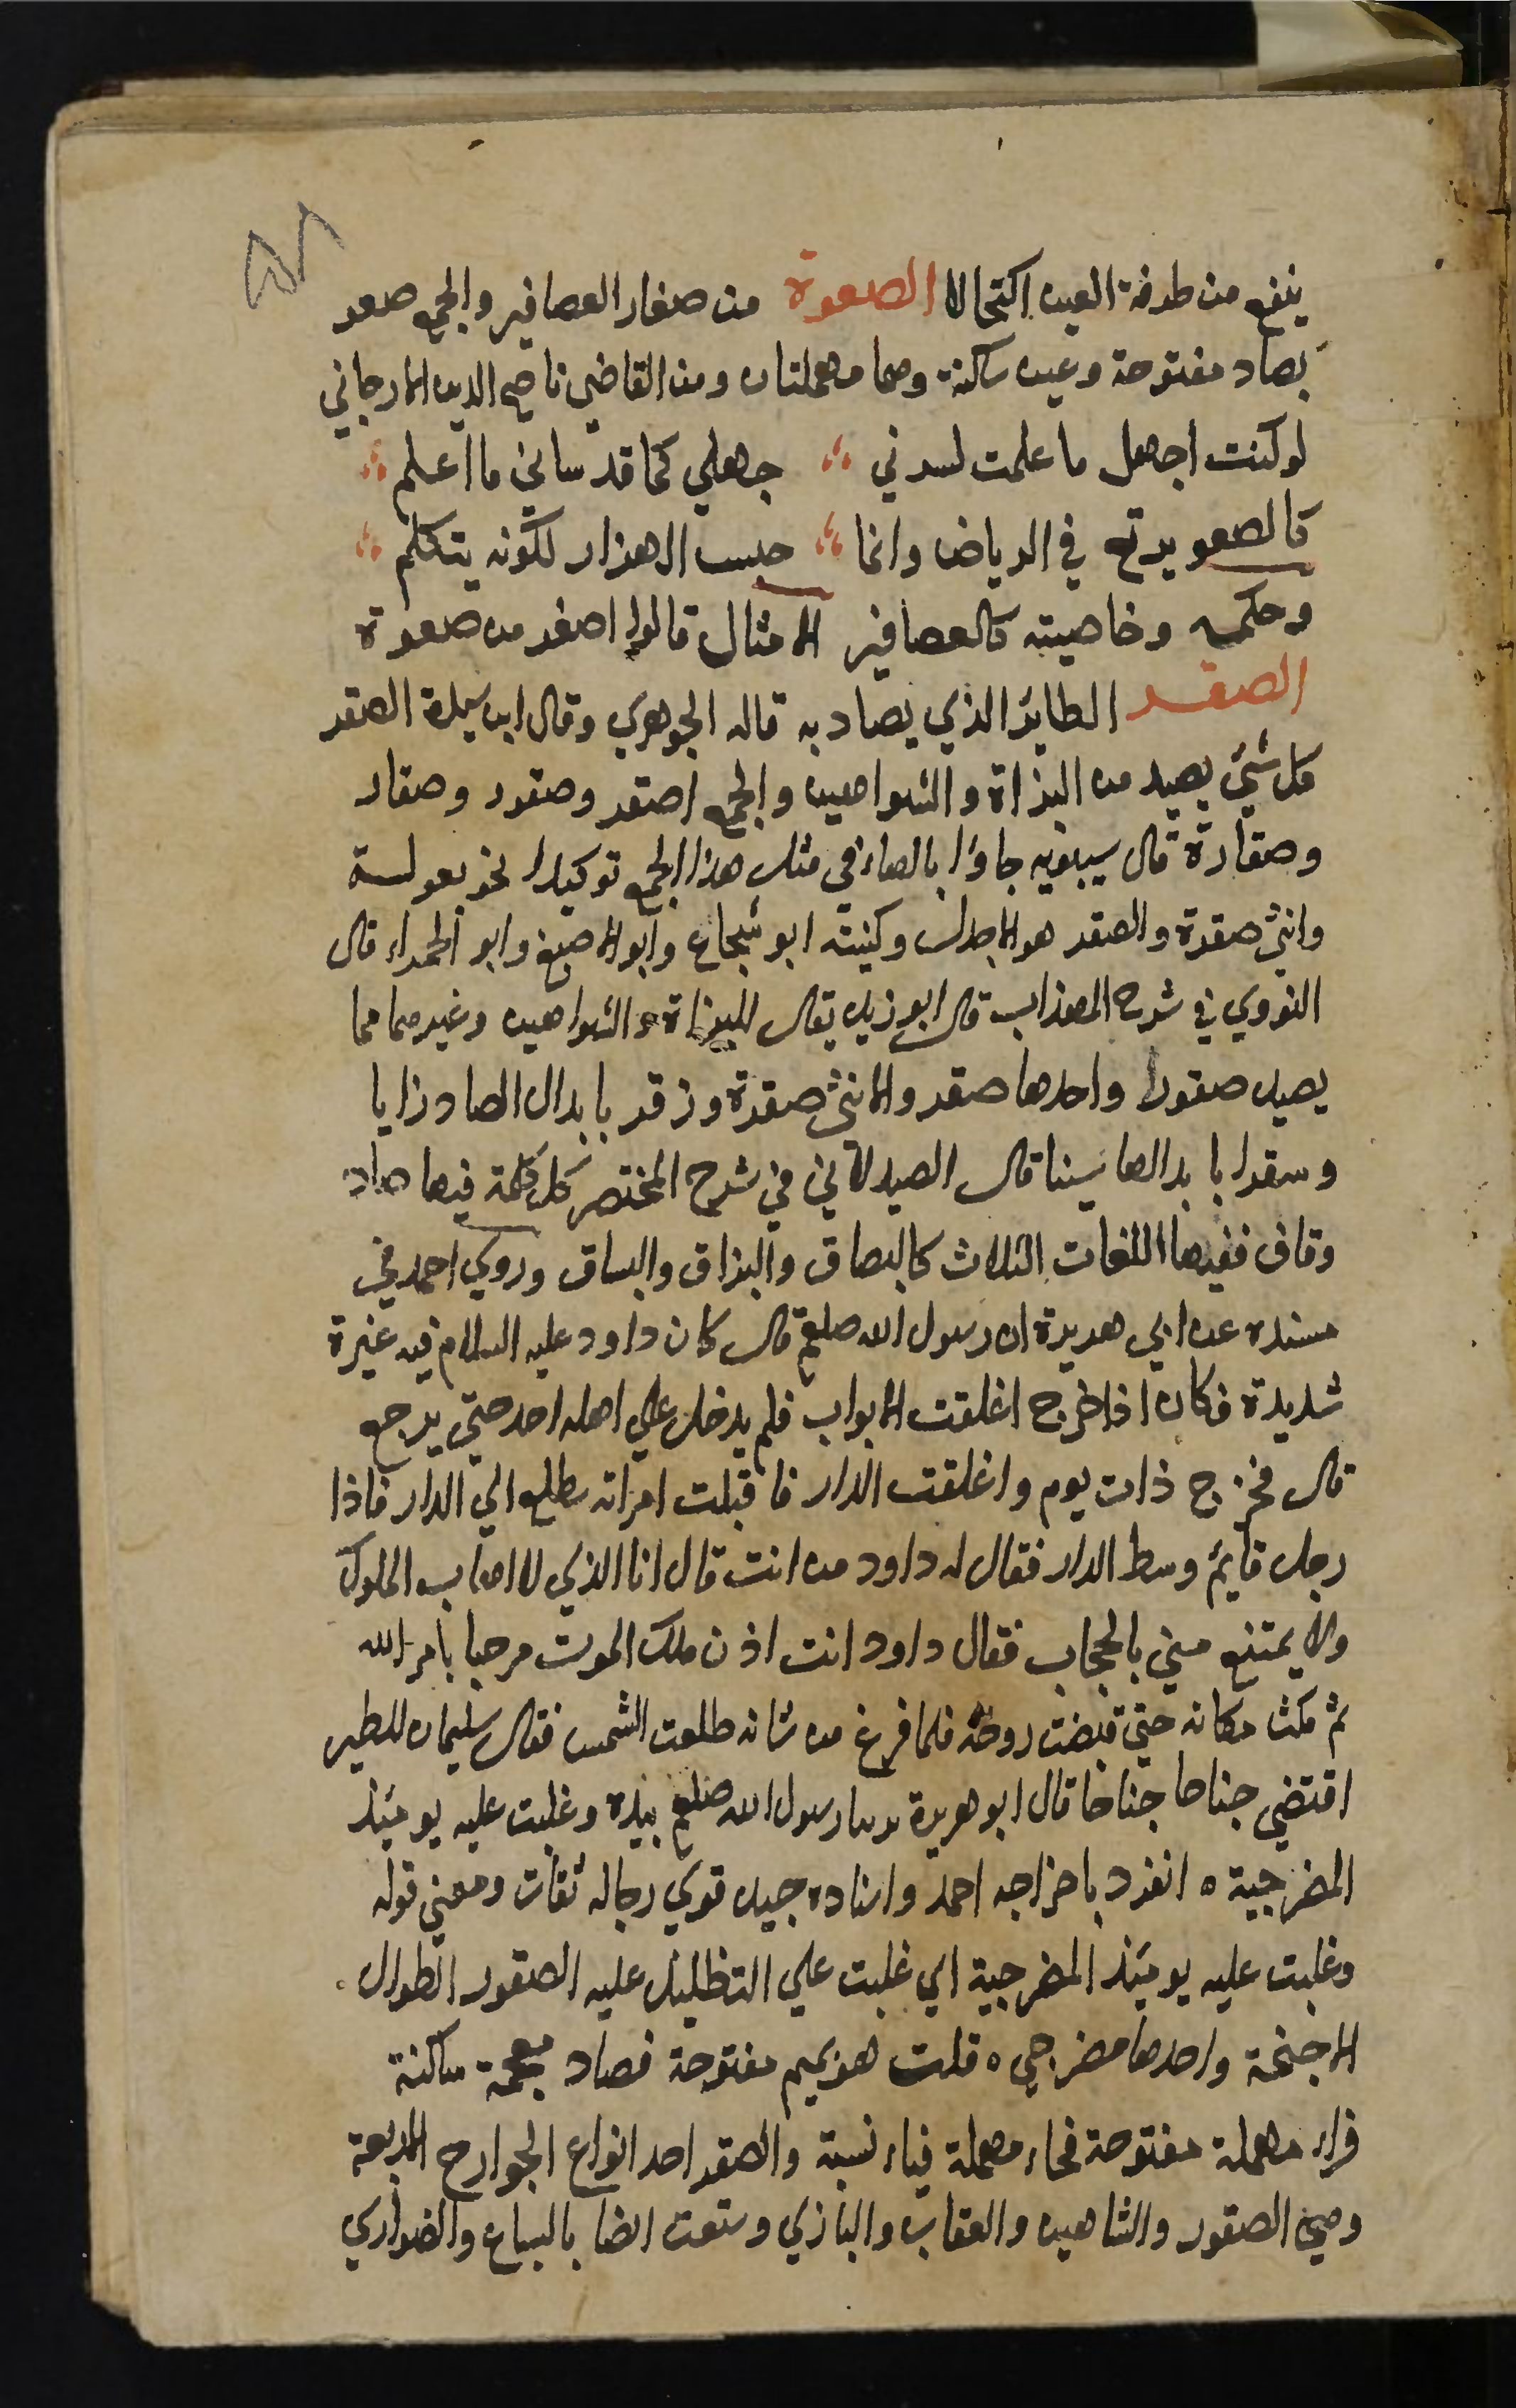 ينفع من طرفة العين اكتحالا الصعوة من صغار العصافير والجمع صعو
بصاد مفتوحة وعين ساكنة وهما مهملتان ومن القاضي ناصح الدين الارجاني
لو كنت اجهل ما علمت لسرني جهلي كما قد ساني ما اعلم
كالصعو يرتع في الرياض وانما حبس الهزار لكونه يتكلم
وحكمه وخاصيته كالعصافير الامثال قالوا اصغر من صعوة
الصقر الطاير الذي يصاد به قاله الجوهري وقال ابن سيدة الصقر
كل شئ يصيد من البزاة والشواهين والجمع اصقر وصقور وصقار
وصقارة قال سيبويه جاؤا بالهاء في مثل هذا الجمع توكيدا نحو بعولة
وانثى صقرة والصقر هو الاجدل وكنيته ابو شجاع وابو الاصبغ وابو الحمراء قال
النووي في شرح المهذاب قال ابو زيد يقال للبزاة والشواهين وغيرهما مما
يصيد صقورا واحدها صقر والانثى صقرة وزقر بابدال الصاد زايا
وسقرا بابدالها سينا قال الصيدلاني في شرح المختصر كل كلمة فيها صاد
وقاف ففيها اللغات الثلاث كالبصاق والبزاق والبساق وروي احمد في
مسنده عن ابي هريرة ان رسول الله صلعم قال كان داود عليه السلام فيه غيرة
شديدة فكان اذا خرج اغلقت الابواب فلم يدخل علي اهله احد حتي يرجع
قال فخرج ذات يوم واغلقت الدار فاقبلت امراته تطلع الي الدار فاذا
رجل قايم وسط الدار فقال له داود من انت قال انا الذي لا اهاب الملوك
ولا يمتنع مني بالحجاب فقال داود انت اذن ملك الموت مرحبا بامر الله
ثم مكث مكانه حتي قبضت روحه فلما فرغ من شانه طلعت الشمس فقال سليمان للطير
اقتضي جناحا جناحا قال ابو هريرة يرينا رسول الله صلعم بيده وغلبت عليه يومئذ
المضرجية ه انفرد باخراجه احمد واسناده جيد قوي رجاله ثقات ومعني قوله
وغلبت عليه يومئذ المضرجية اي غلبت علي التظليل عليه الصقور الطوال
الاجنحة واحدها مضرجي ه قلت هو بميم مفتوحة فصاد معجمة ساكنة
فراء مهملة مفتوحة فحاء مهملة فياء نسبة والصقر احد انواع الجوارح الاربعة
وهي الصقور والشاهين والعقاب والبازي وتنعت ايضا بالسباع والضواري